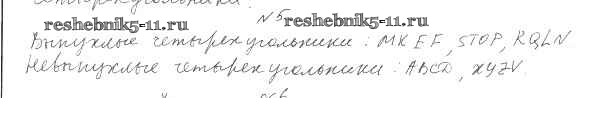 четырехугольники.
№5
reshebnik5-11.ru reshebnik5-11.ru
Выпуклые четырехугольники: MKEF, STOP, RQLN
Невыпуклые четырехугольники: ABCD, XYZV.
№6